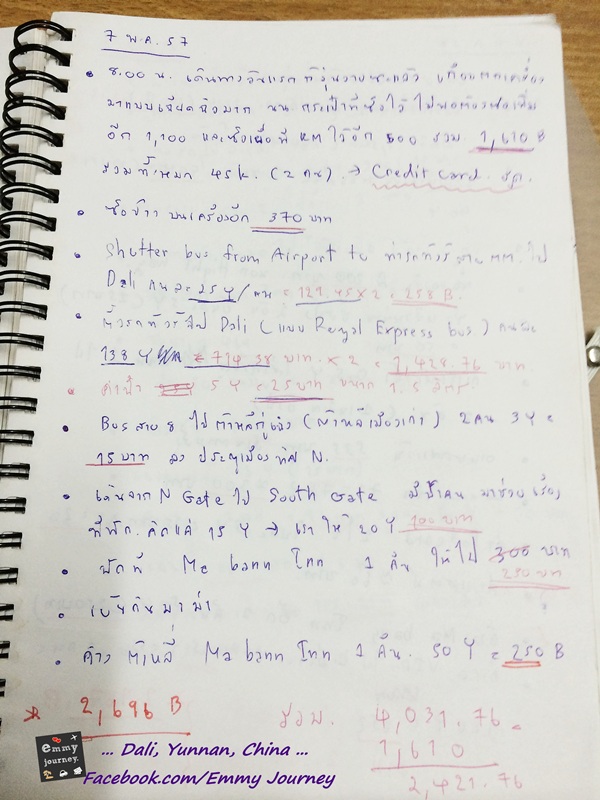 7 พ.ค. 57
8.00 น. เดินทางวันแรก ก็วุ่นวายซะแล้ว
มาแบบเฉียดฉิวมาก จน กระเป๋าที่ซื้อไว้ไม่พอต้องซื้อเพิ่ม
อีก 1,100 และซื้อเผื่อที่ KM ไว้อีก 500 รวม 1,610 B
รวมทั้งหมด 45k. (2 คน) → Credit card.
ซื้อข้าว บนเครื่องอีก 370 บาท
Shutter bus from Airport to ท่ารถทัวร์ ไป
Dali คนละ 25 Y/คน = 129.45 x 2 = 258 B.
ตั๋วรถทัวร์ไป Dali (แบบ Royal Express bus) คนละ
138 Y = 714.38 บาท x 2 = 1,428.76 บาท
5 Y = 25 บาท ขนาด 1.5 ลิตร
Bus สาย 8 ไปต้าหลี่กู่เฉิง (ต้าหลี่เมืองเก่า) 2 คน 3 Y =
15 บาท ลง ประตูเมือง ทิศ N.
เดินจาก N Gate ไป South Gate มีป้าคน มาช่วยเรื่อง
ที่พัก. คิดแค่ 15 Y → เราให้ 20 Y 100 บาท
พักที่ Me bann Inn 1 คืน ให้ไป 300 บาท
250 บาท
เย็นกินมาม่า
ค้าง ต้าหลี่ Ma bann Inn 1 คืน. 50 Y = 250 B
* 2,696 B
รวม. 4,031.76
1,610
2,421.76
emmy
journey.
... Dali, Yunnan, China ...
Facebook.com/Emmy Journey